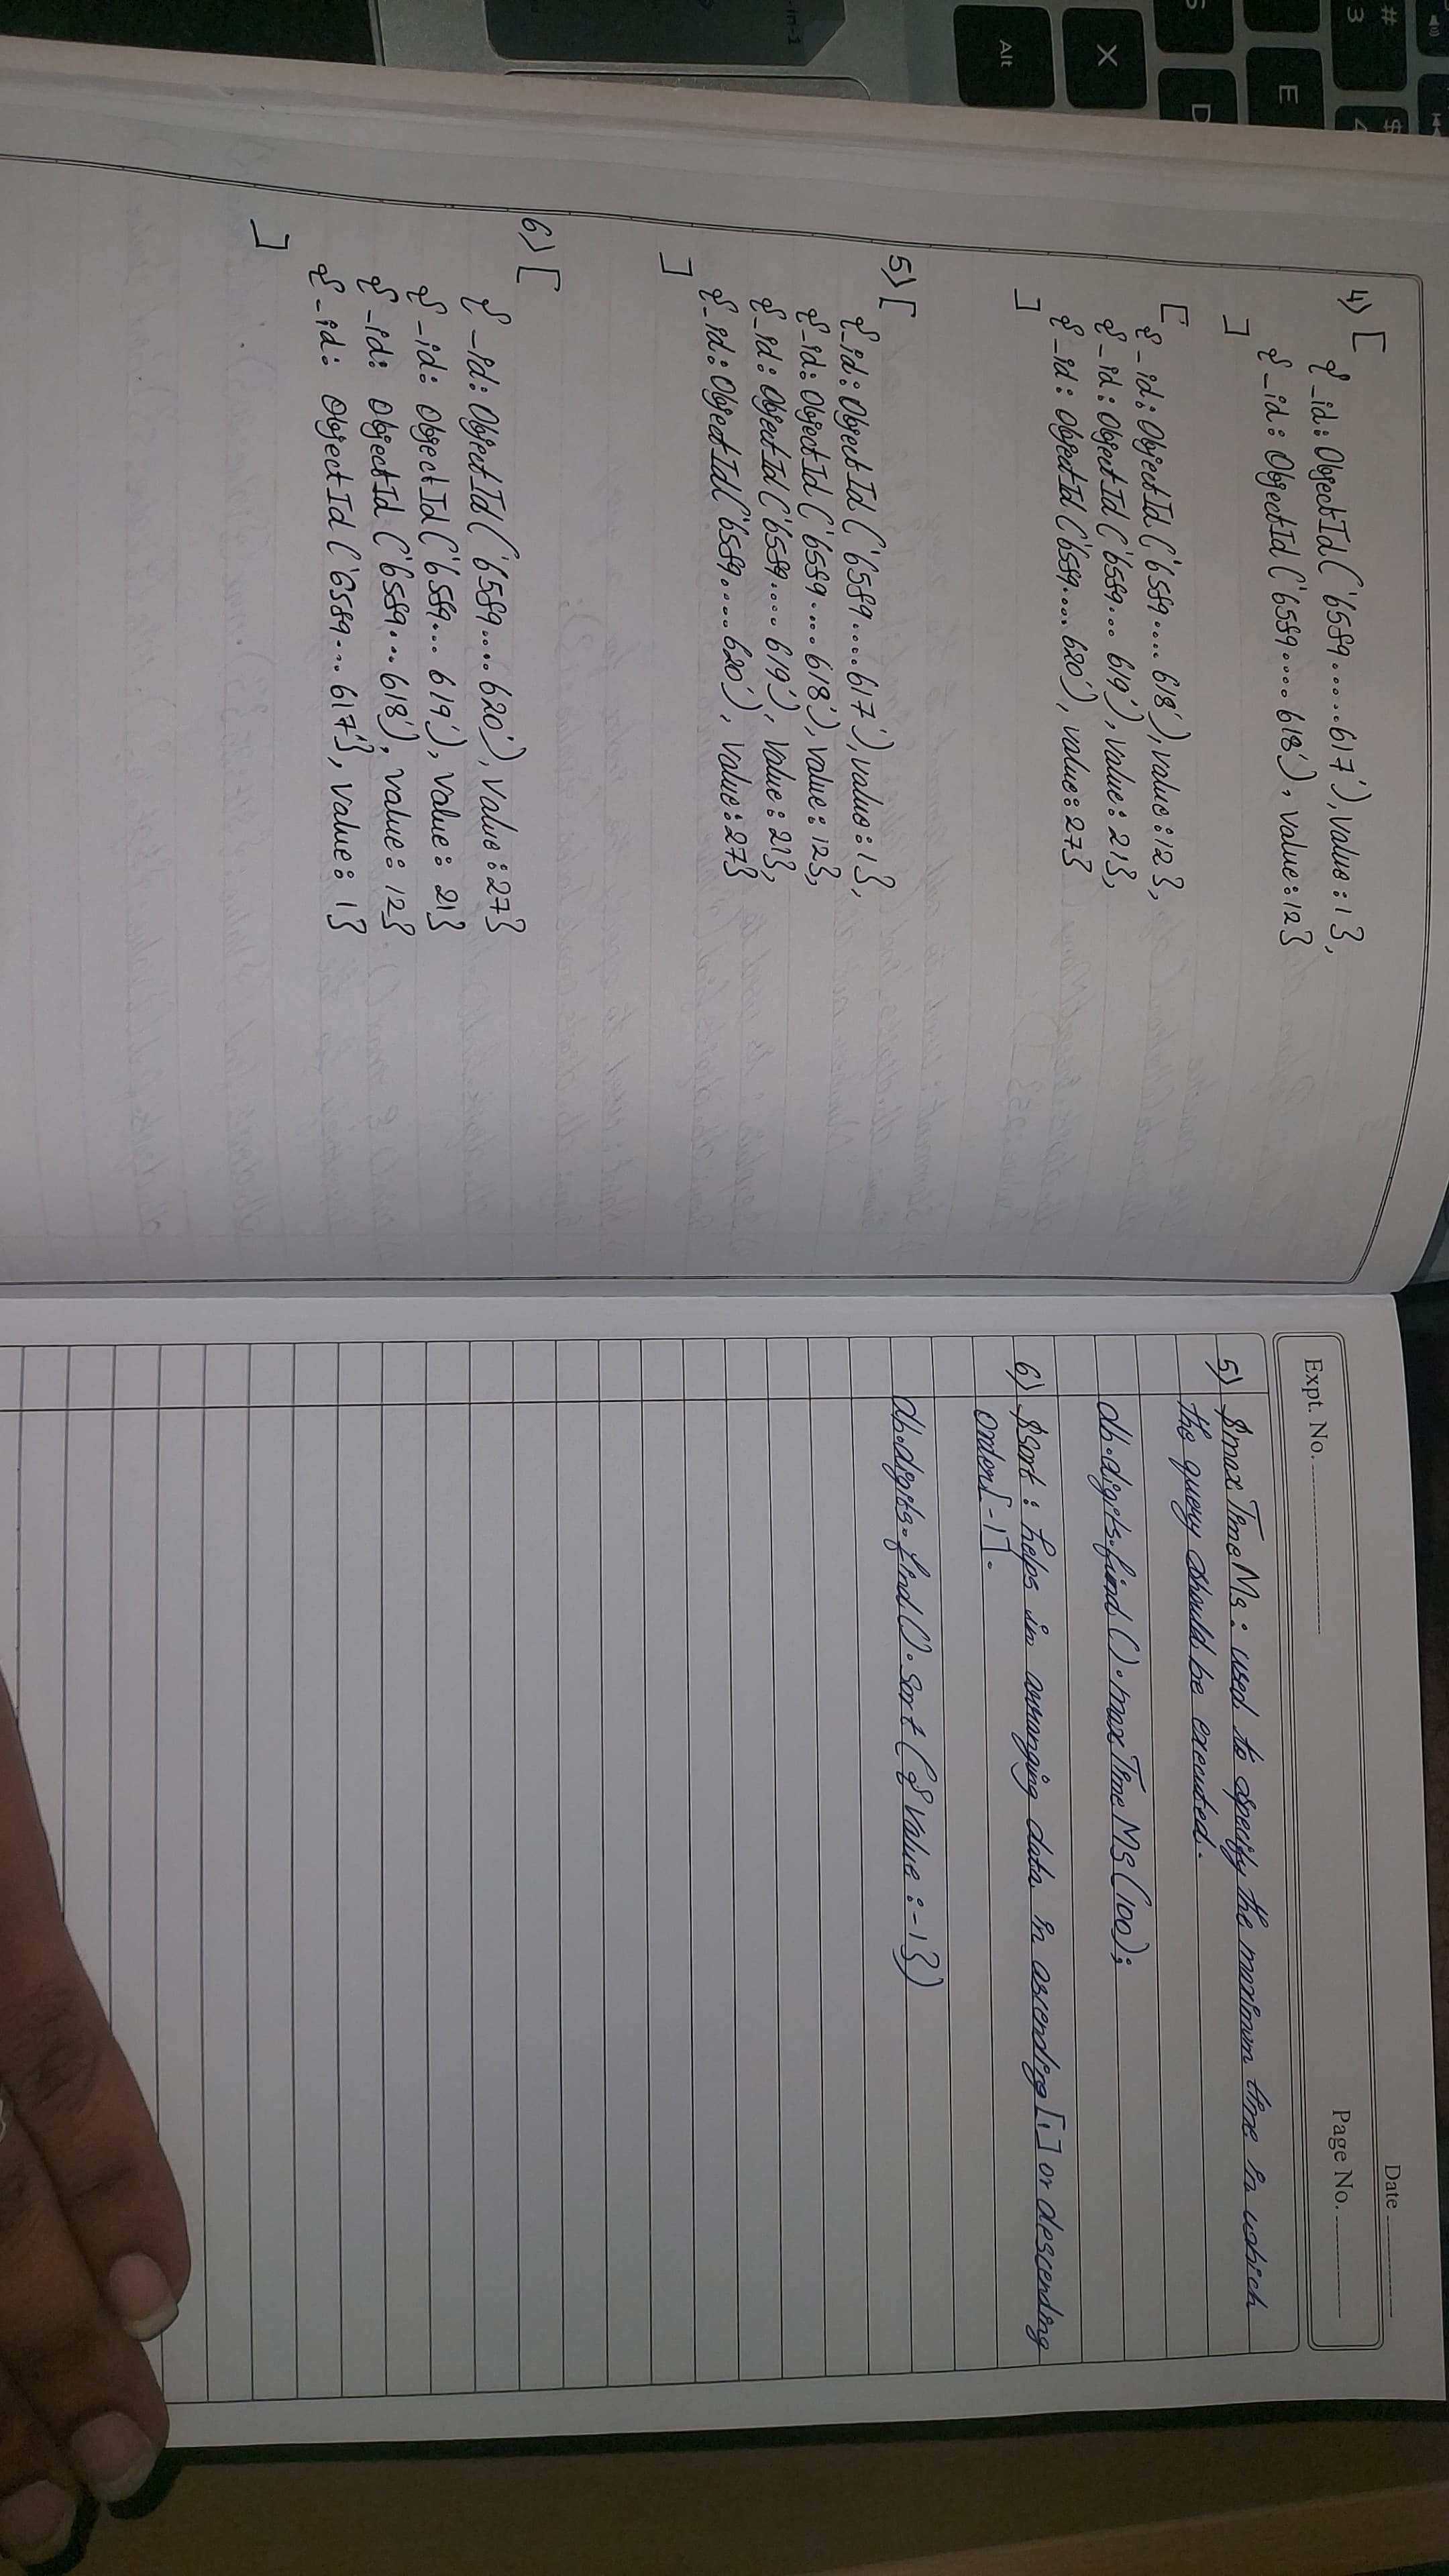 4) [
{_id: ObjectId('6589......617'), value:1},
{_id: ObjectId('6589.... 618'), value:12}
]
[
{_id: ObjectId('6589.... 618'), value:12},
{_id: ObjectId('6589... 619'), value: 21},
{_id: ObjectId('6589.... 620'), value:27}
]
5) [
{_id: ObjectId('6589....617'), value:1},
{_id: ObjectId('6589.... 618'), value: 12},
{_id: ObjectId('6589.... 619'), value: 21},
{_id: ObjectId('6589.... 620'), value:27}
]
6) [
{_id: ObjectId('6589.... 620'), value:27}
{_id: ObjectId('6589... 619'), value: 21}
{_id: ObjectId('6589... 618'), value: 12}
{_id: ObjectId('6589... 617'}, value: 1}
]
Date
Expt. No. Page No.
5) $maxTimeMs: used to specify the maximum time in which
the query should be executed.
db.digits.find().maxTimeMS(100);
6) $sort: helps in arranging data in ascending[1] or descending
order[-1].
db.digits.find().sort({value:-1})
# 3
$ 4
E
S
D
X
Alt
-in-1